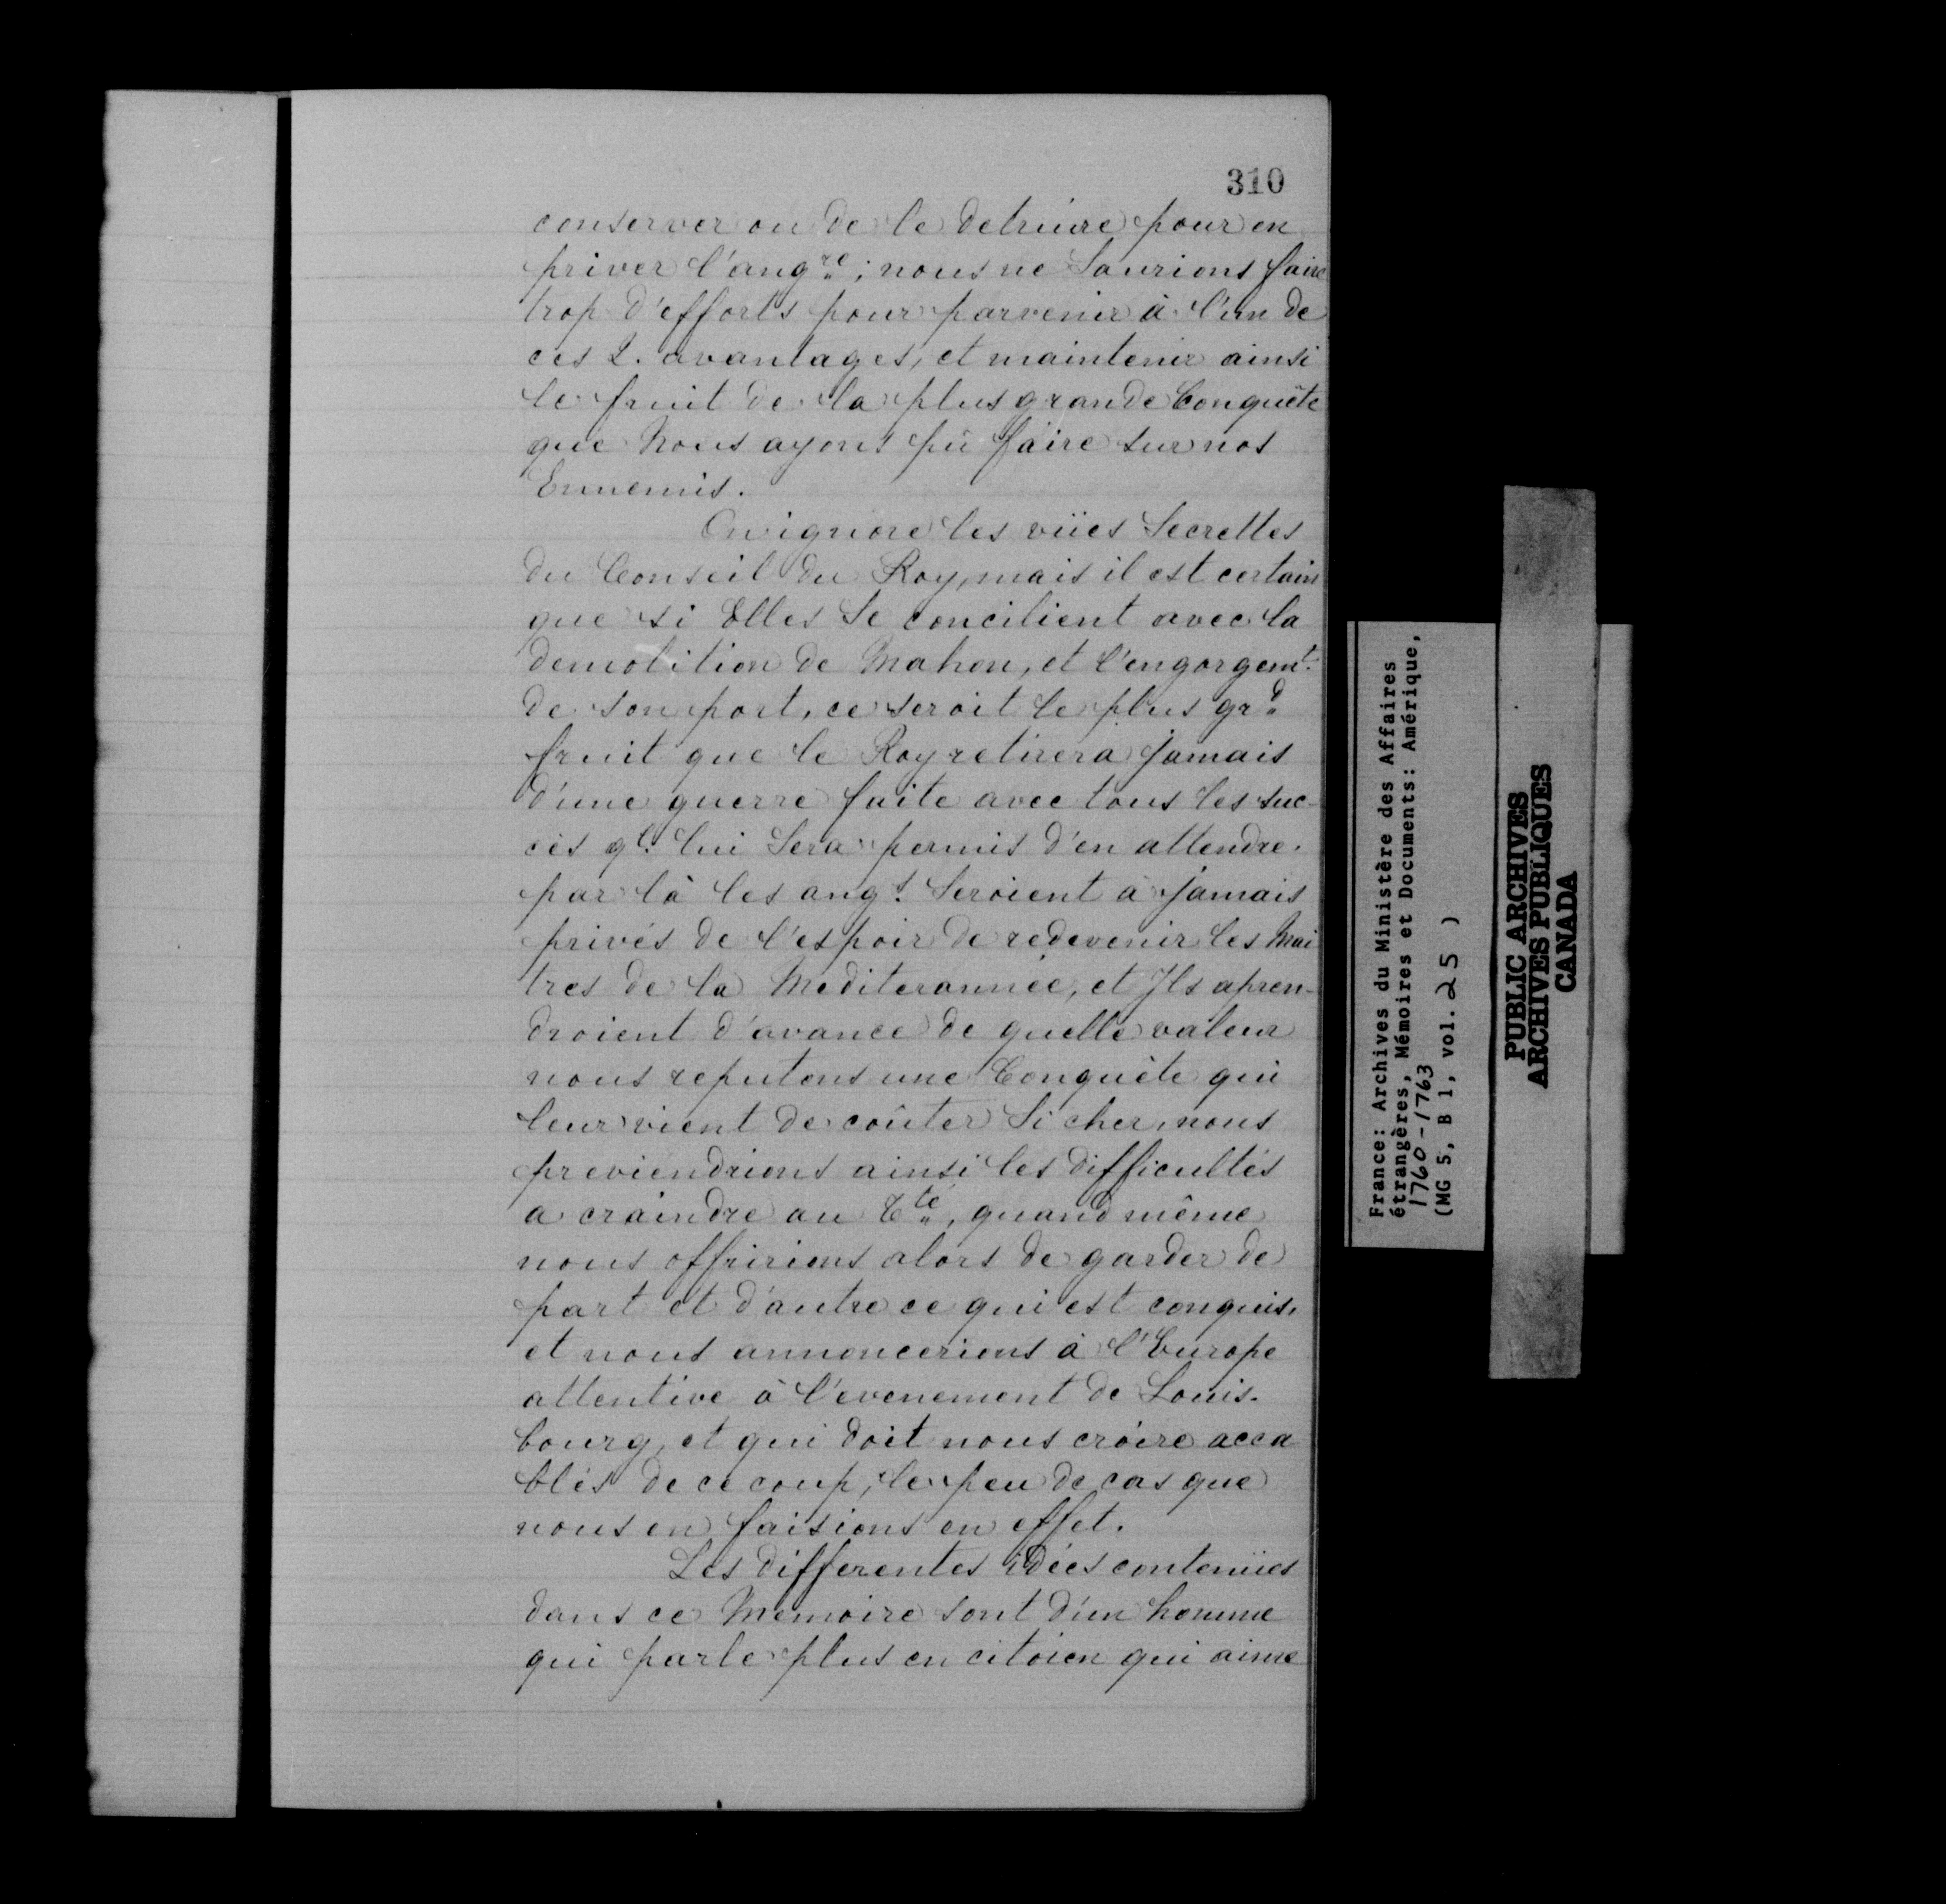 310
conserver ou de le detruire pour en
priver l'angre; nous ne Saurions faire
trop d'efforts pour parvenir à l'un de
ces 2. avantages, et maintenir ainsi
le fruit de la plus grande Conquête
que Nous ayons pû faire sur nos
Ennemis.
On ignore les vües Secrettes
du Conseil du Roy, mais il est certain
que si Elles Se concilient avec la
demolition de Mahon, et l'engorgemt.
de son port, ce seroit le plus grd
fruit que le Roy retirera jamais
d'une guerre faite avec tous les suc-
cès ql. lui Sera permis d'en attendre.
par là les angs. Seroient à jamais
privés de l'espoir de redevenir les Mai
tres de la Mediterannée, et Ils apren-
droient d'avance de quelle valeur
nous reputons une Conquête qui
leur vient de coûter Si cher, nous
previendrions ainsi les difficultés
a craindre au Tté, quand même
nous offririons alors de garder de
part et d'autre ce qui est conquis,
et nous annoncerions à l'Europe
attentive à l'evenement de Louis-
bourg, et qui doit nous croire acca
blés de ce coup, le peu de cas que
nous en faisions en effet.
Les differentes idées contenües
dans ce Memoire sont d'un homme
qui parle plus en citoien qui aime
France: Archives du Ministère des Affaires
étrangères, Mémoires et Documents: Amérique,
1760-1763
(MG 5, B 1, vol. 25 )
PUBLIC ARCHIVES
ARCHIVES PUBLIQUES
CANADA